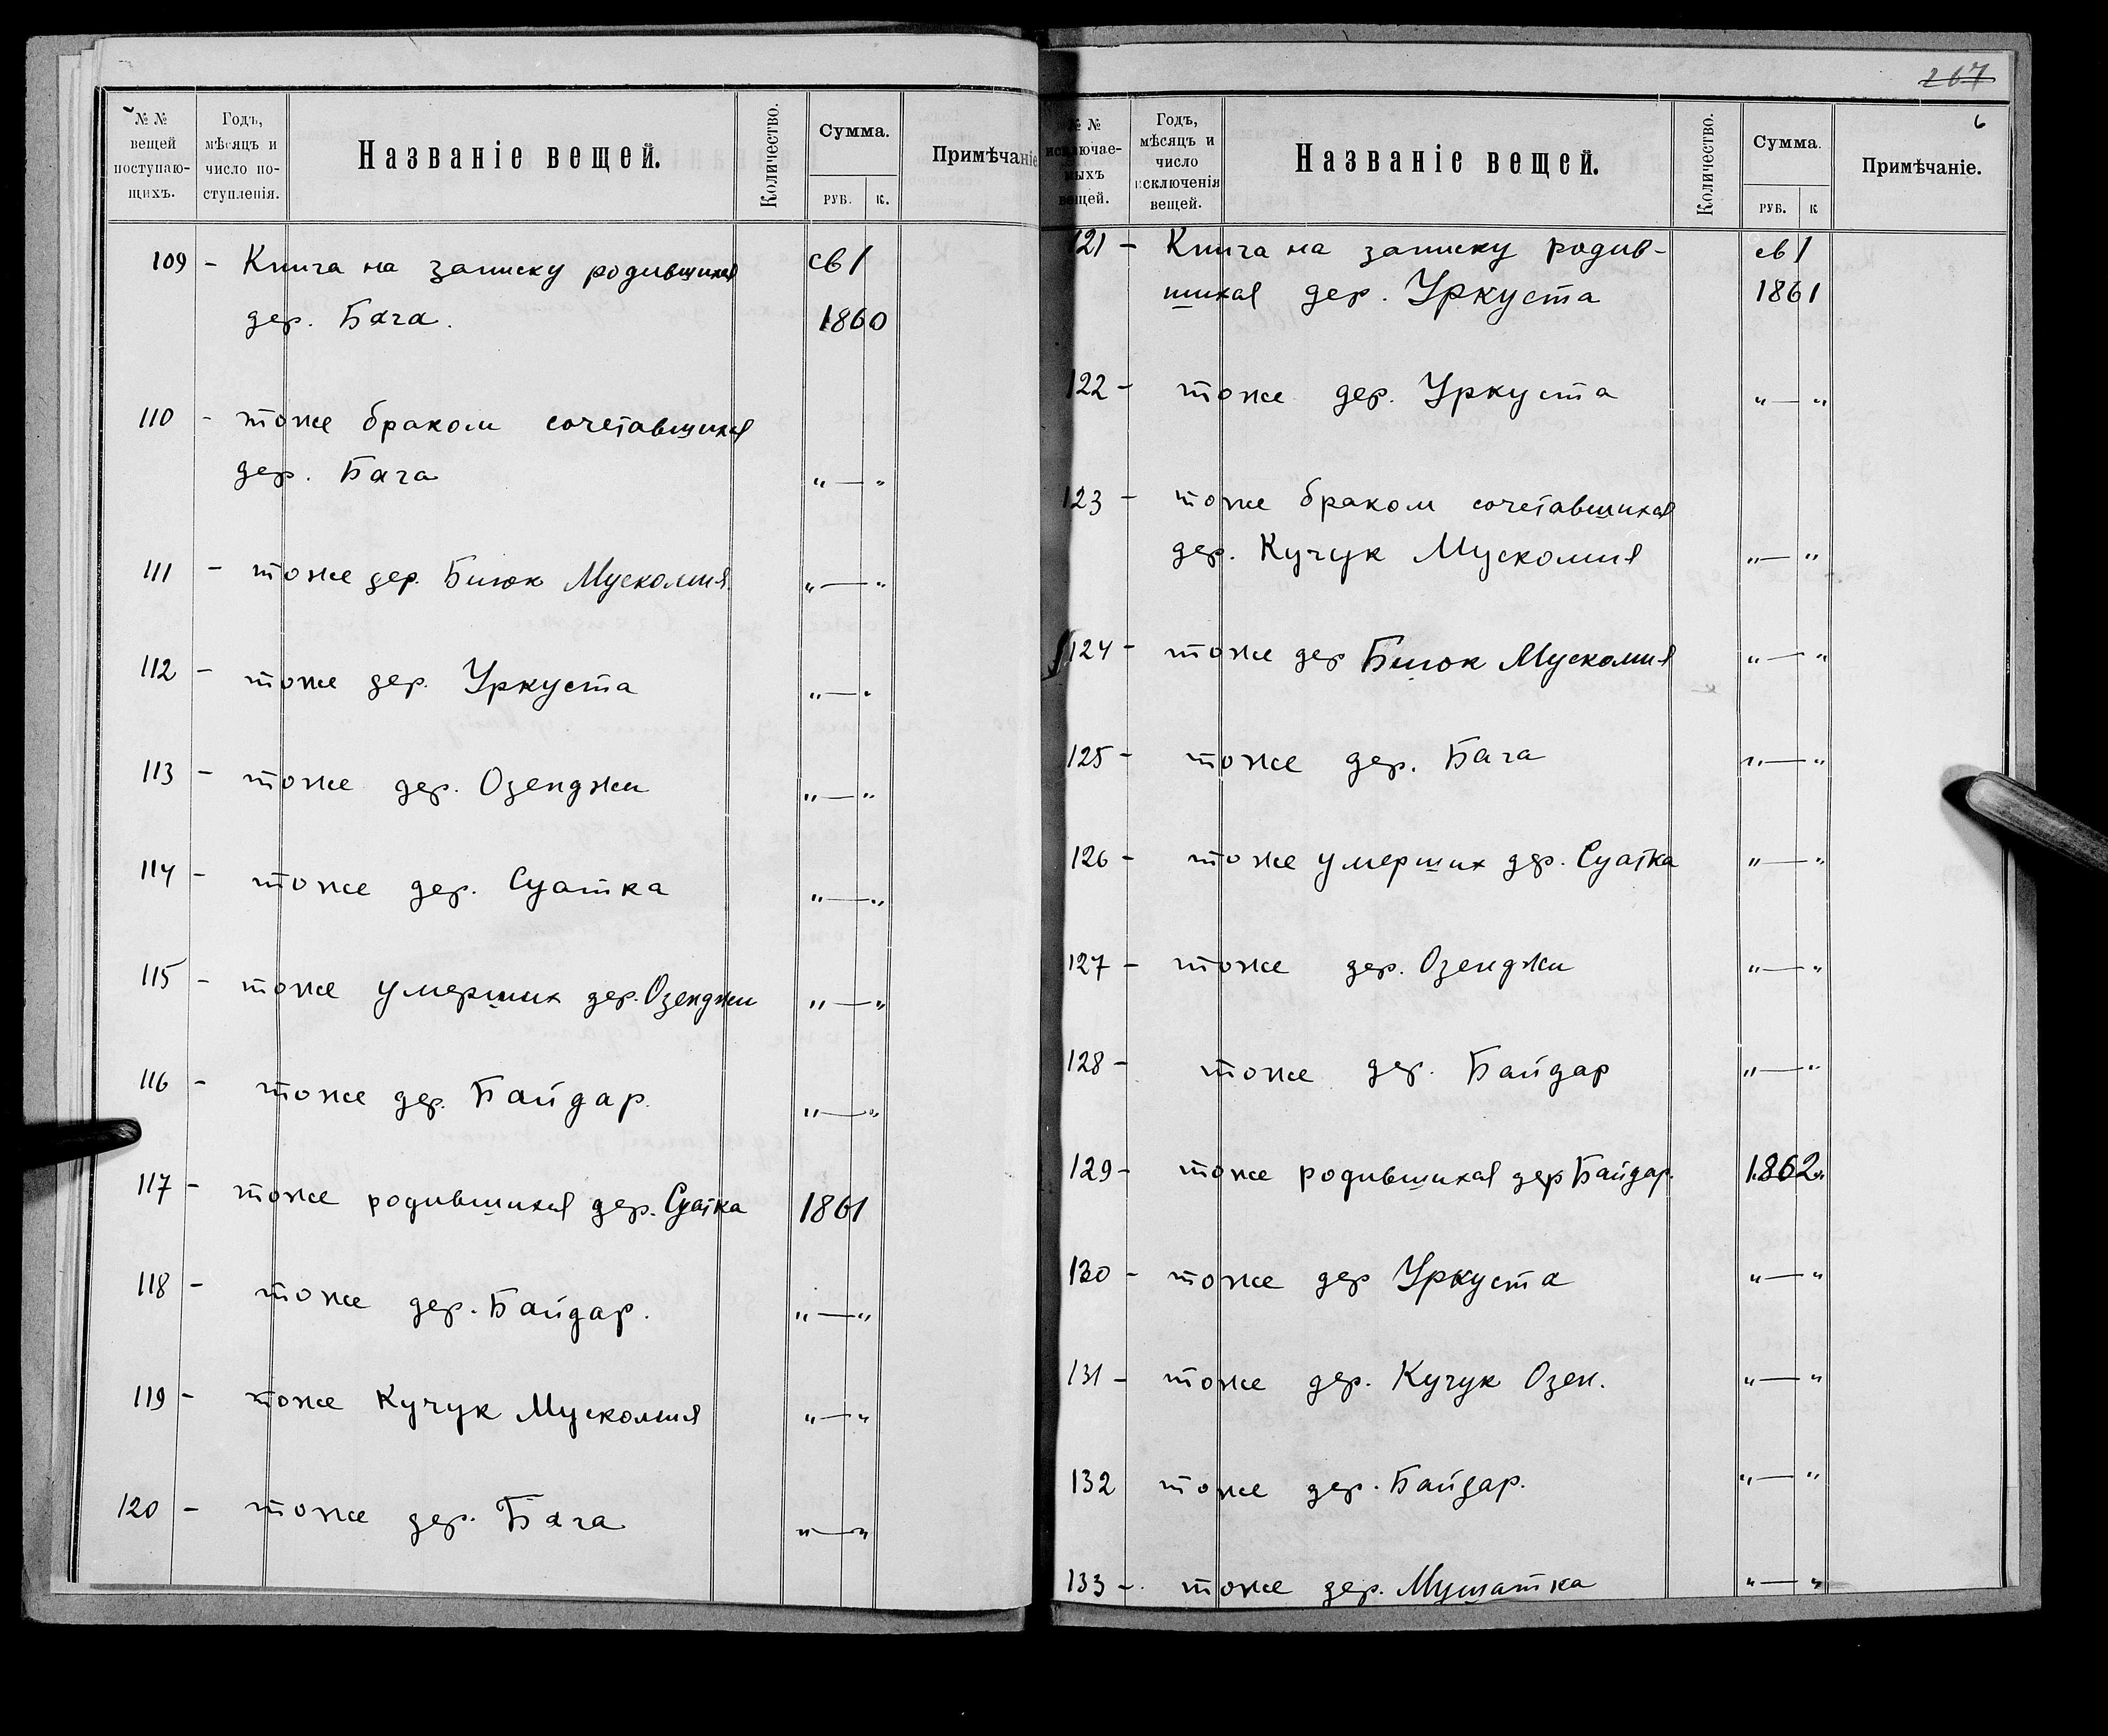 № №
вещей
поступаю-
щихъ.
Годъ,
мѣсяцъ и
число по-
ступленія.
Названіе вещей.
Количество.
Сумма.
РУБ. К.
Примѣчаніе
109 - Книга на записку родившихся св 1
дер. Бага. 1860
110 - тоже браком сочетавшихся
дер. Бага " — "
111 - тоже дер. Биюк Мускомия. " — "
112 - тоже дер. Уркуста " — "
113 - тоже дер. Озенджи " — "
114 - тоже дер. Суатка " — "
115 - тоже умерших дер. Озенджи " — "
116 - тоже дер. Байдар. " — "
117 - тоже родившихся дер. Суатка 1861
118 - тоже дер. Байдар. " — "
119 - тоже Кучук Мускомия " — "
120 - тоже дер. Бага " — "
267
6
№ №
исключае-
мыхъ
вещей.
Годъ,
мѣсяцъ и
число
исключенія
вещей.
Названіе вещей.
Количество.
Сумма.
РУБ. К
Примѣчаніе.
121 - Книга на записку родив- св 1
шихся дер. Уркуста 1861
122 - тоже дер. Уркуста " — "
123 - тоже браком сочетавшихся
дер. Кучук Мускомия " — "
124 - тоже дер Биюк Мускомия " — "
125 - тоже дер. Бага " — "
126 - тоже умерших дер. Суатка " — "
127 - тоже дер. Озенджи " — "
128 - тоже дер. Байдар " — "
129 - тоже родившихся дер Байдар. 1862
130 - тоже дер Уркуста " — "
131 - тоже дер. Кучук Озен. " — "
132 тоже дер. Байдар. " — "
133 - тоже дер. Мушатка " — "